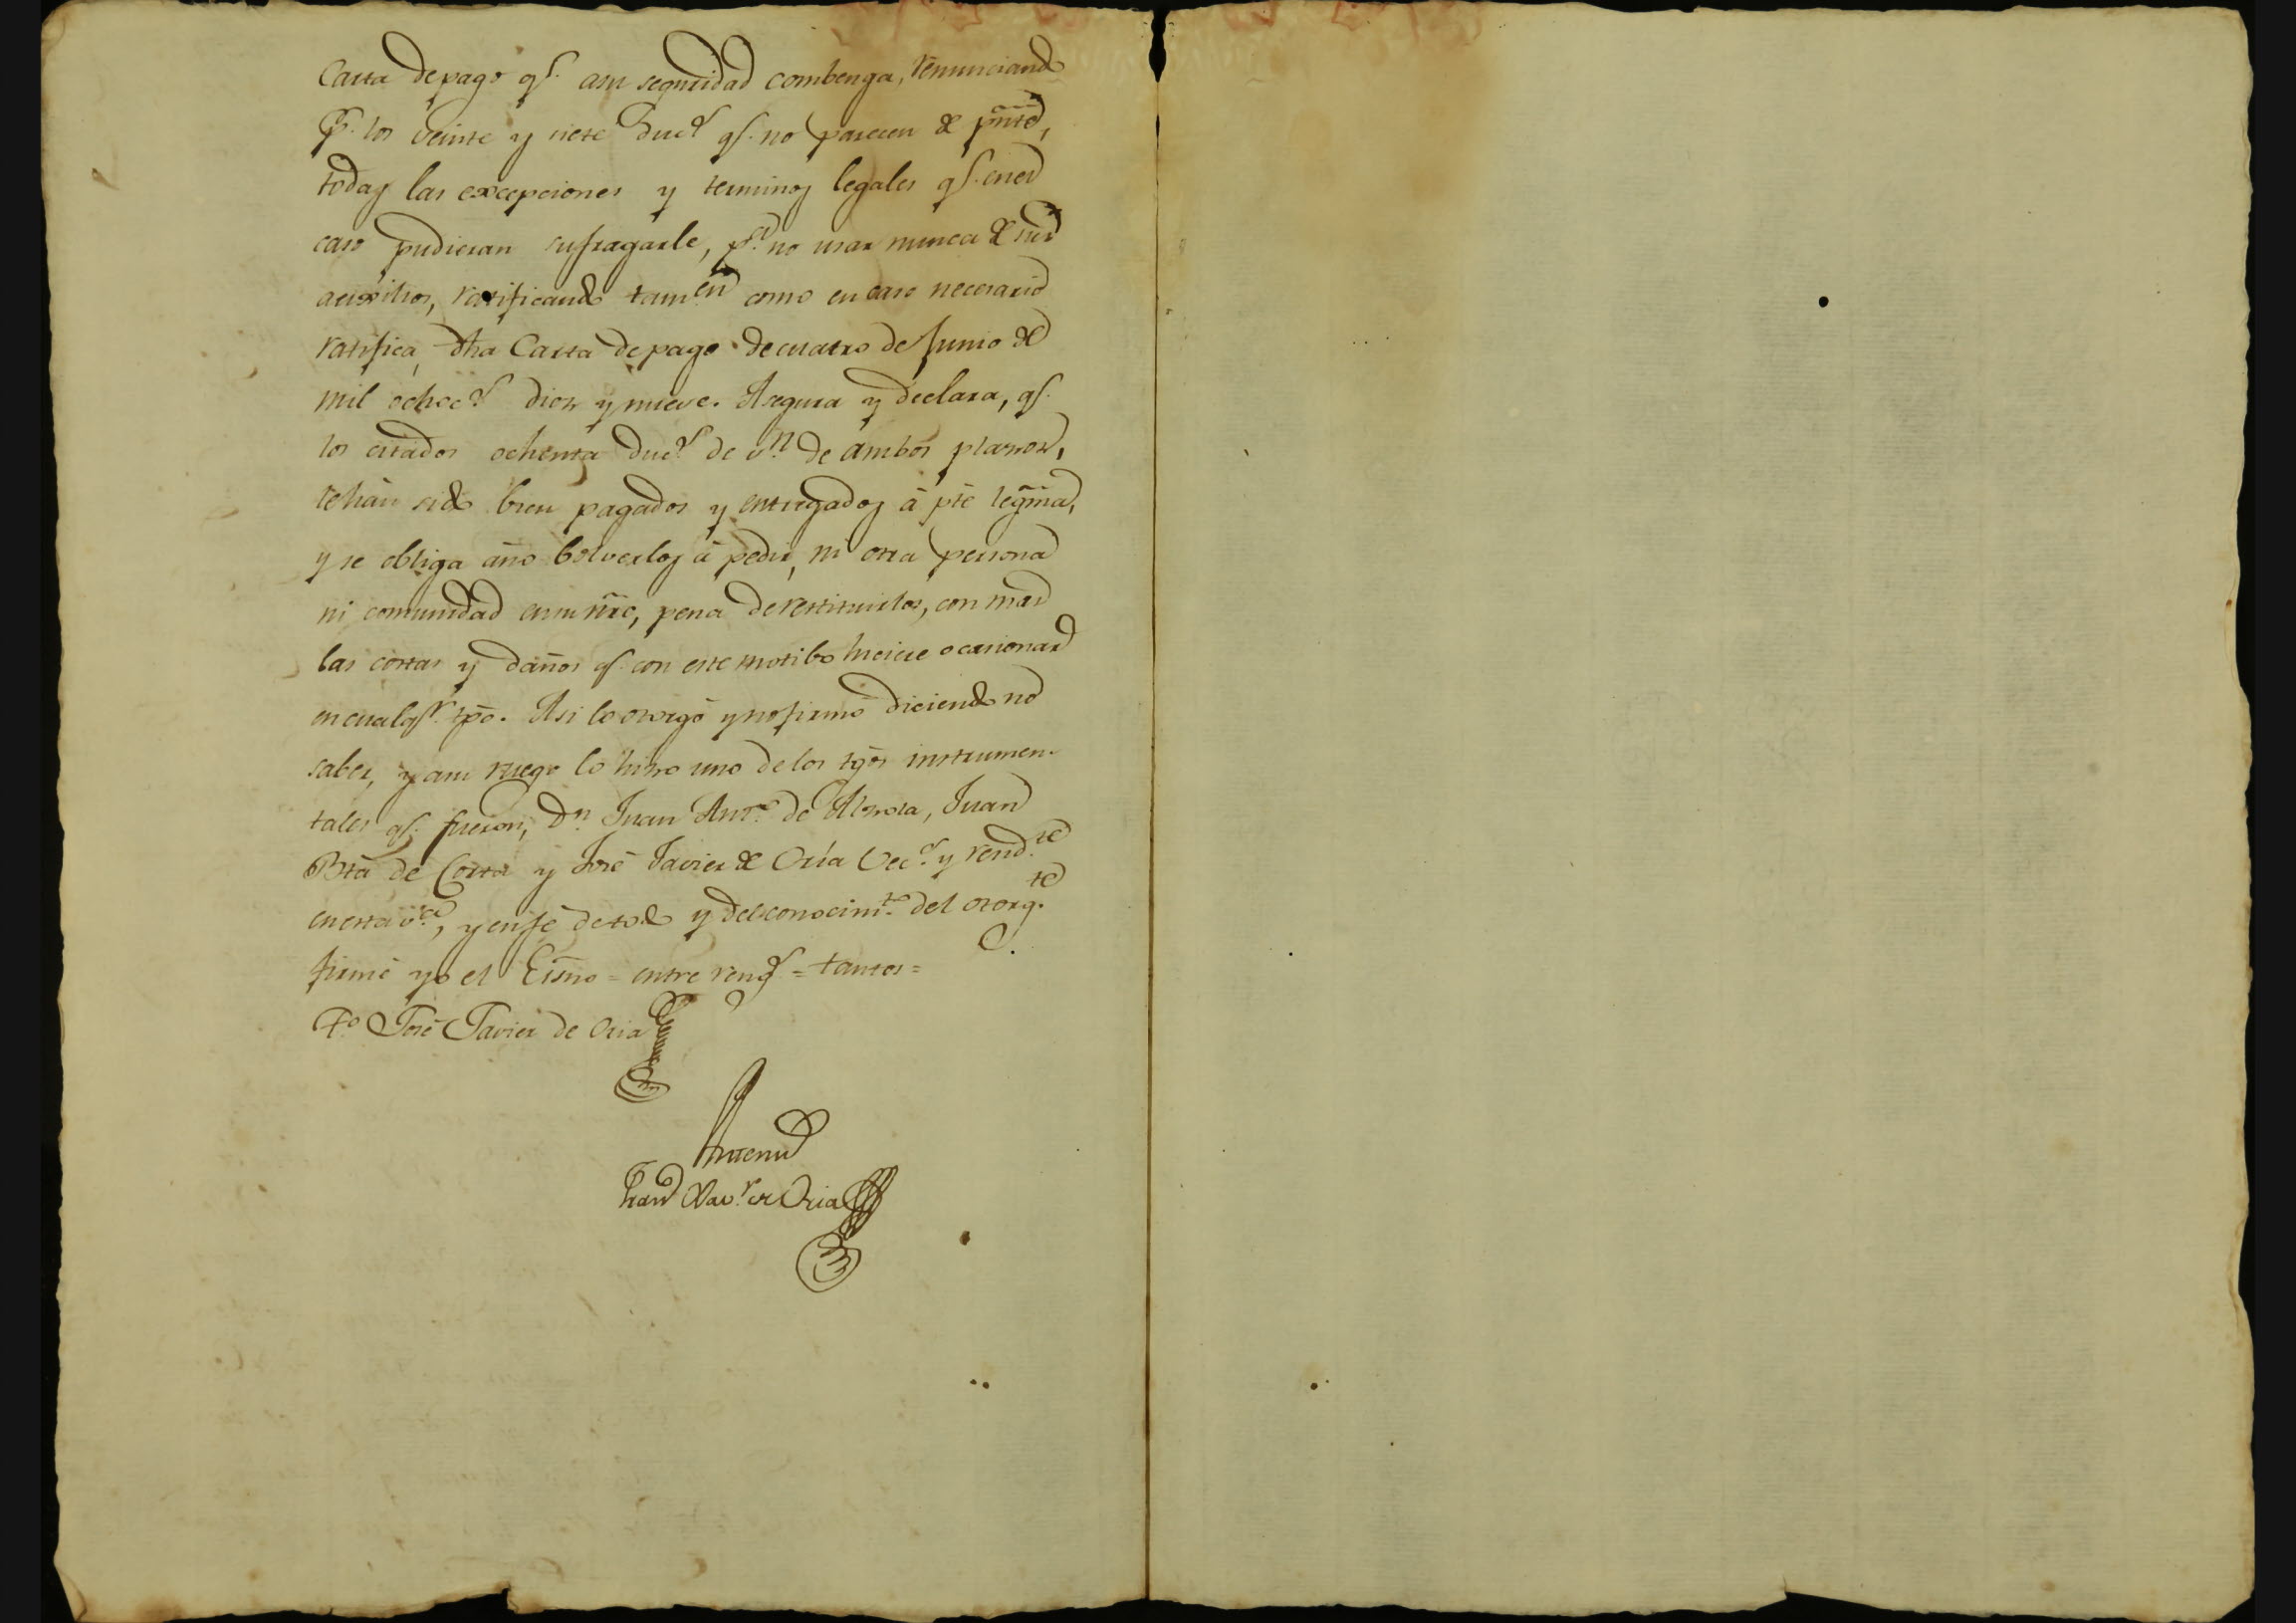 Carta de pago q.e asu seguridad combenga, renunciando
p.r los veinte y siete duc.s q.e no parecen de pñte,
todas las excepciones y terminos legales q.e enel
caso pudieran sufragarle, p.a no usar nunca de sus
auxilios, ratificando tam.en como en caso necesario
ratifica, dha Carta de pago de cuatro de Junio de
mil ochoc.s diez y nueve. Asegura y declara, q.e
los citados ochenta duc.s de v.n de ambos plazos,
le hán sido bien pagados y entregados á pte legma,
y se obliga áno bolverlos á pedir, ni otra persona
ni comunidad ensu nre, pena de restituirlos, con mas
las costas y daños q.e con este motibo hiciere ocasionar
en cualq.r tpo. Asi lo otorgó y no firmó diciendo no
saber, y asu ruego lo hizo uno de los tgos instrumen-
tales q.e fueron, D.n Juan Ant.o de Alzola, Juan
Bta de Corta y José Javier de Oria Vec.s y resid.te
en esta v.a, y enfé de todo y del conocim.to del otorg.te
firmé yo el Esno = entre reng.s = tantos =
T.o José Javier de Oria
Antemi
Fran.co Xav.r de Oria